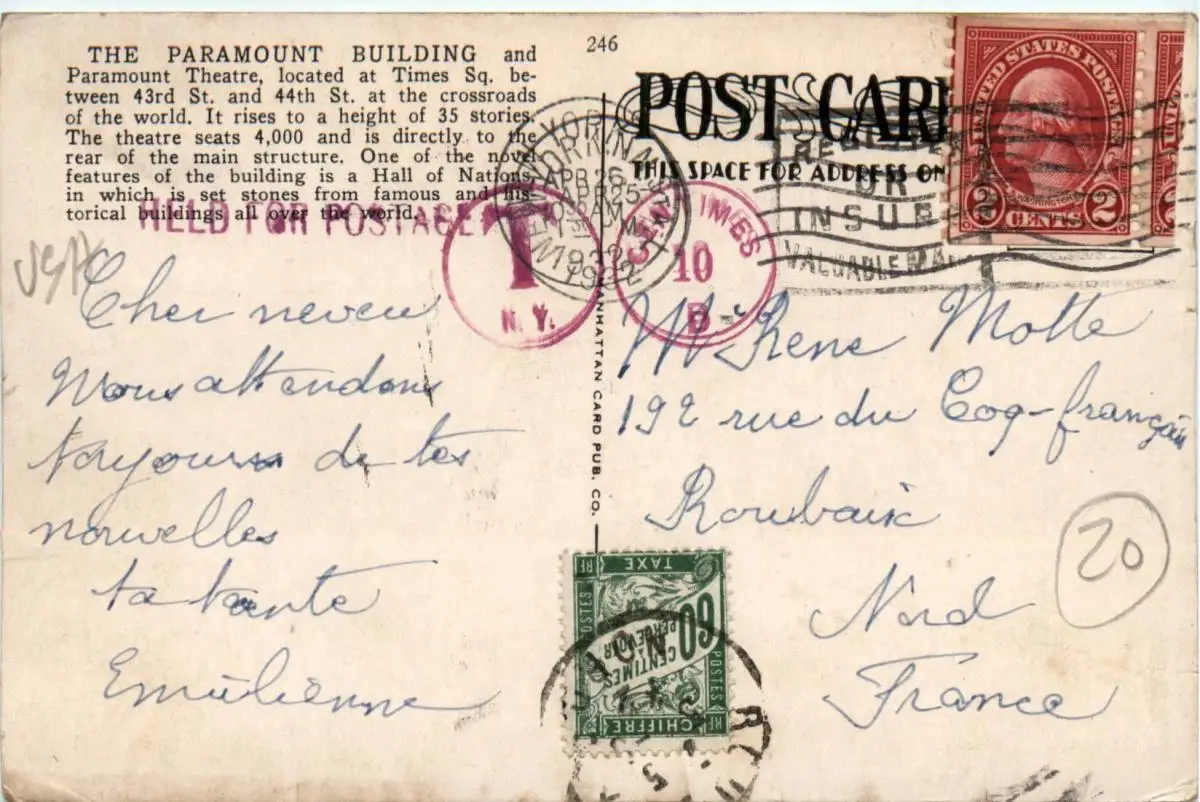 THE PARAMOUNT BUILDING and
Paramount Theatre, located at Times Sq. be-
tween 43rd St. and 44th St. at the crossroads
of the world. It rises to a height of 35 stories.
The theatre seats 4,000 and is directly to the
rear of the main structure. One of the novel
features of the building is a Hall of Nations,
in which is set stones from famous and his-
torical buildings all over the world.
HELD FOR POSTAGE
T
N. Y.
Cher neveu
Nous attendons
toujours de tes
nouvelles
ta tante
Emilienne
246
POST CARD
THIS SPACE FOR ADDRESS ON
NEW YORK, N.Y.
APR 26
1932
CENTIMES
10
B
REGISTER
OR
INSURE
VALUABLE MAIL
UNITED STATES POSTAGE
WASHINGTON
2 CENTS 2
Mr Rene Motte
192 rue du Coq-français
Roubaix
Nord
France
20
MANHATTAN CARD PUB. CO.
RF TAXE RF
POSTES
60
CENTIMES
A PERCEVOIR
POSTES
RF CHIFFRE RF